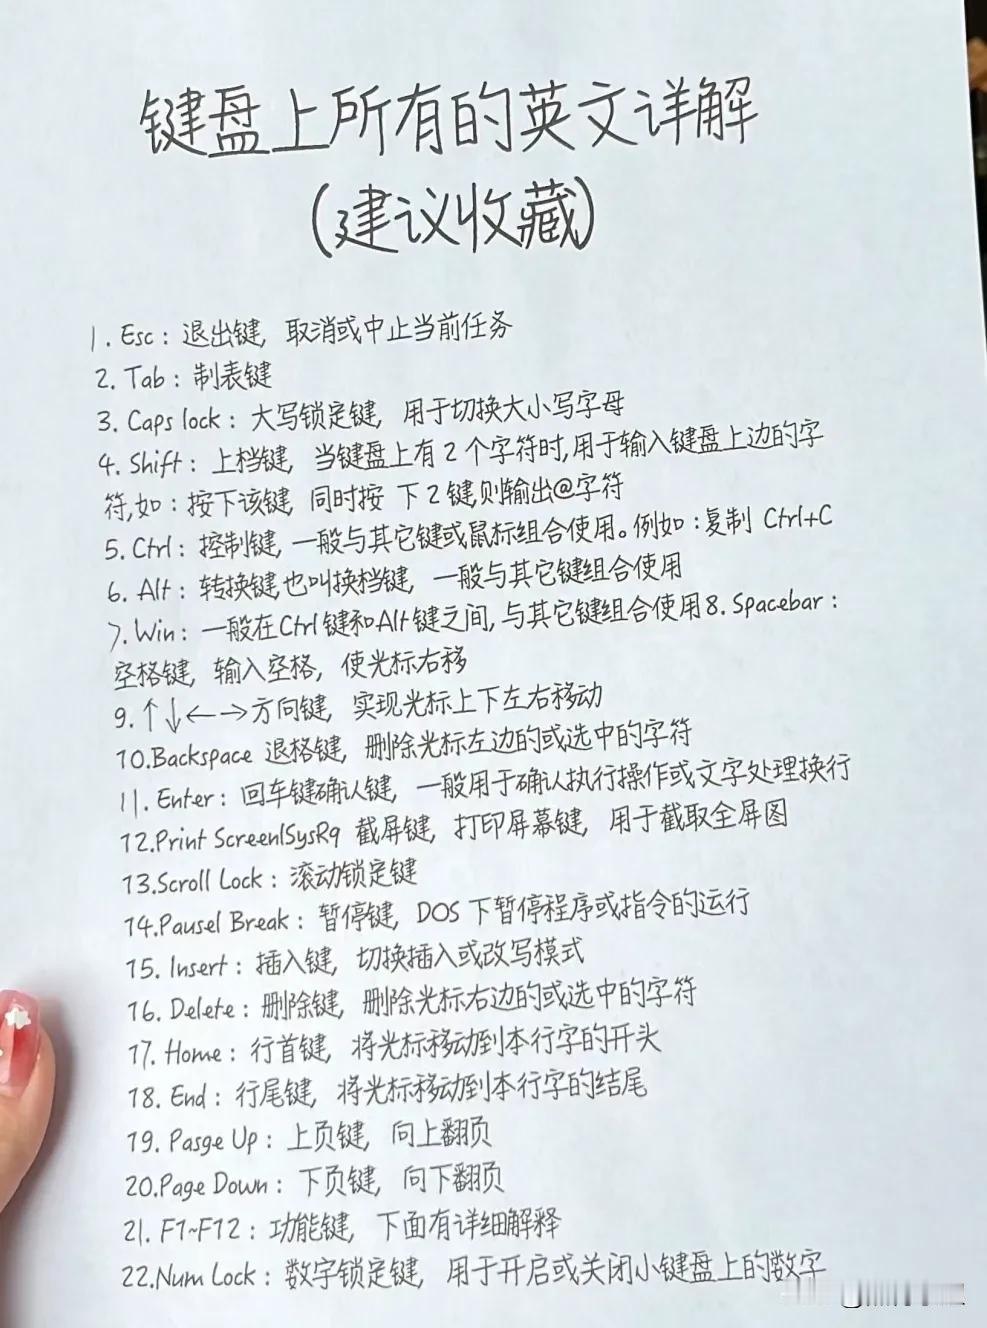 键盘上所有的英文详解
(建议收藏)
1. Esc: 退出键, 取消或中止当前任务
2. Tab: 制表键
3. Caps lock: 大写锁定键, 用于切换大小写字母
4. Shift: 上档键, 当键盘上有2个字符时,用于输入键盘上边的字
符,如:按下该键, 同时按 下2键,则输出@字符
5. Ctrl: 控制键, 一般与其它键或鼠标组合使用。例如:复制 Ctrl+C
6. Alt: 转换键,也叫换档键, 一般与其它键组合使用
7. Win: 一般在Ctrl键和Alt键之间, 与其它键组合使用8. Spacebar:
空格键, 输入空格, 使光标右移
9. ↑↓←→方向键, 实现光标上下左右移动
10.Backspace 退格键, 删除光标左边的或选中的字符
11. Enter: 回车键确认键, 一般用于确认执行操作或文字处理换行
12.Print Screen|SysRq 截屏键, 打印屏幕键, 用于截取全屏图
13.Scroll Lock: 滚动锁定键
14.Pausel Break: 暂停键, DOS 下暂停程序或指令的运行
15. Insert: 插入键, 切换插入或改写模式
16. Delete: 删除键, 删除光标右边的或选中的字符
17. Home: 行首键, 将光标移动到本行字的开头
18. End: 行尾键, 将光标移动到本行字的结尾
19. Pasge Up: 上页键, 向上翻页
20.Page Down: 下页键, 向下翻页
21. F1~F12: 功能键, 下面有详细解释
22.Num Lock: 数字锁定键, 用于开启或关闭小键盘上的数字